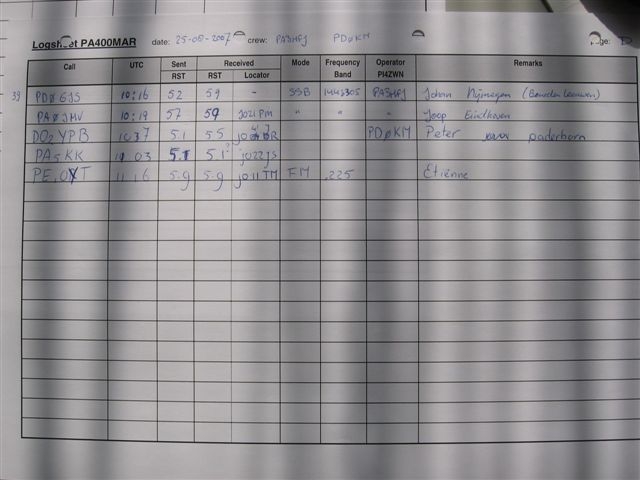 Logsheet PA400MAR date: 25-05-2007 crew: PA3HFJ PDØKM
Call UTC Sent RST Received RST Locator Mode Frequency Band Operator PI4ZWN Remarks
39 PDØGJS 10:16 52 59 - SSB 144,305 PA3HFJ Johan Nijmegen (Beneden Leeuwen)
PAØJMV 10:19 57 59 JO21PM " " " Joop Eindhoven
DO2YPB 1037 51 55 PDØKM Peter paderborn
PA5KK 11 03 5.1 5.1 jo22JS
11.16 5.9 5.9 jo11TM FM .225 Etiënne